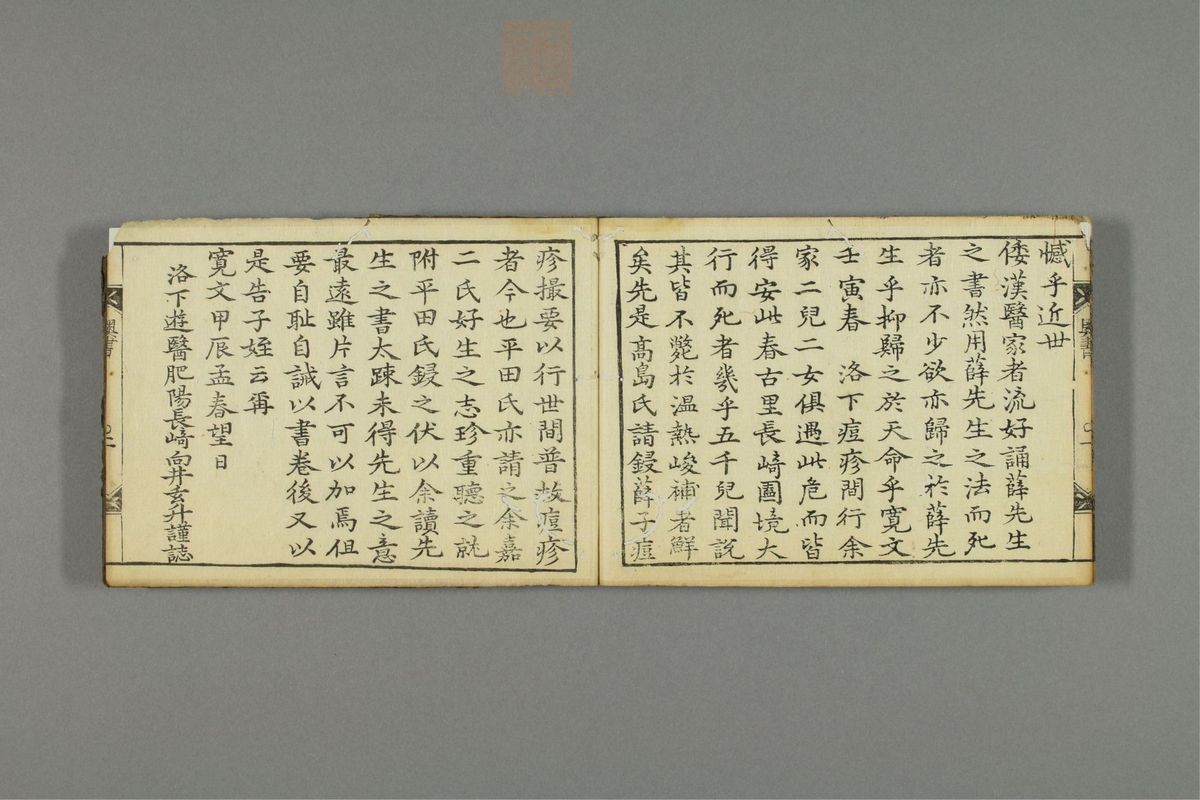 憾乎近世
倭漢醫家者流好誦薛先生
之書然用薛先生之法而死
者亦不少欲亦歸之於薛先
生乎抑歸之於天命乎寬文
壬寅春　洛下痘疹間行余
家二兒二女俱遇此危而皆
得安此春古里長崎圖境大
行而死者幾乎五千兒聞說
其皆不斃於温熱峻補者鮮
矣先是髙島氏請鋟薛子痘
疹撮要以行世間普救痘疹
者今也平田氏亦請之余嘉
二氏好生之志珍重聽之就
附平田氏鋟之伏以余讀先
生之書太踈未得先生之意
最遠雖片言不可以加焉但
要自耻自誡以書卷後又以
是告子姪云爾
寬文甲辰孟春望日
洛下遊醫肥陽長﨑向井玄升謹誌